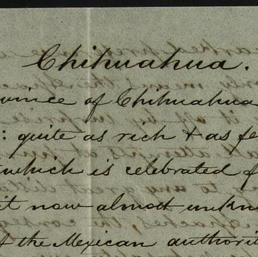 Chihuahua.
vince of Chihuahua
: quite as rich & as fe
which is celebrated f
it now almost unkn
f the Mexican authorit